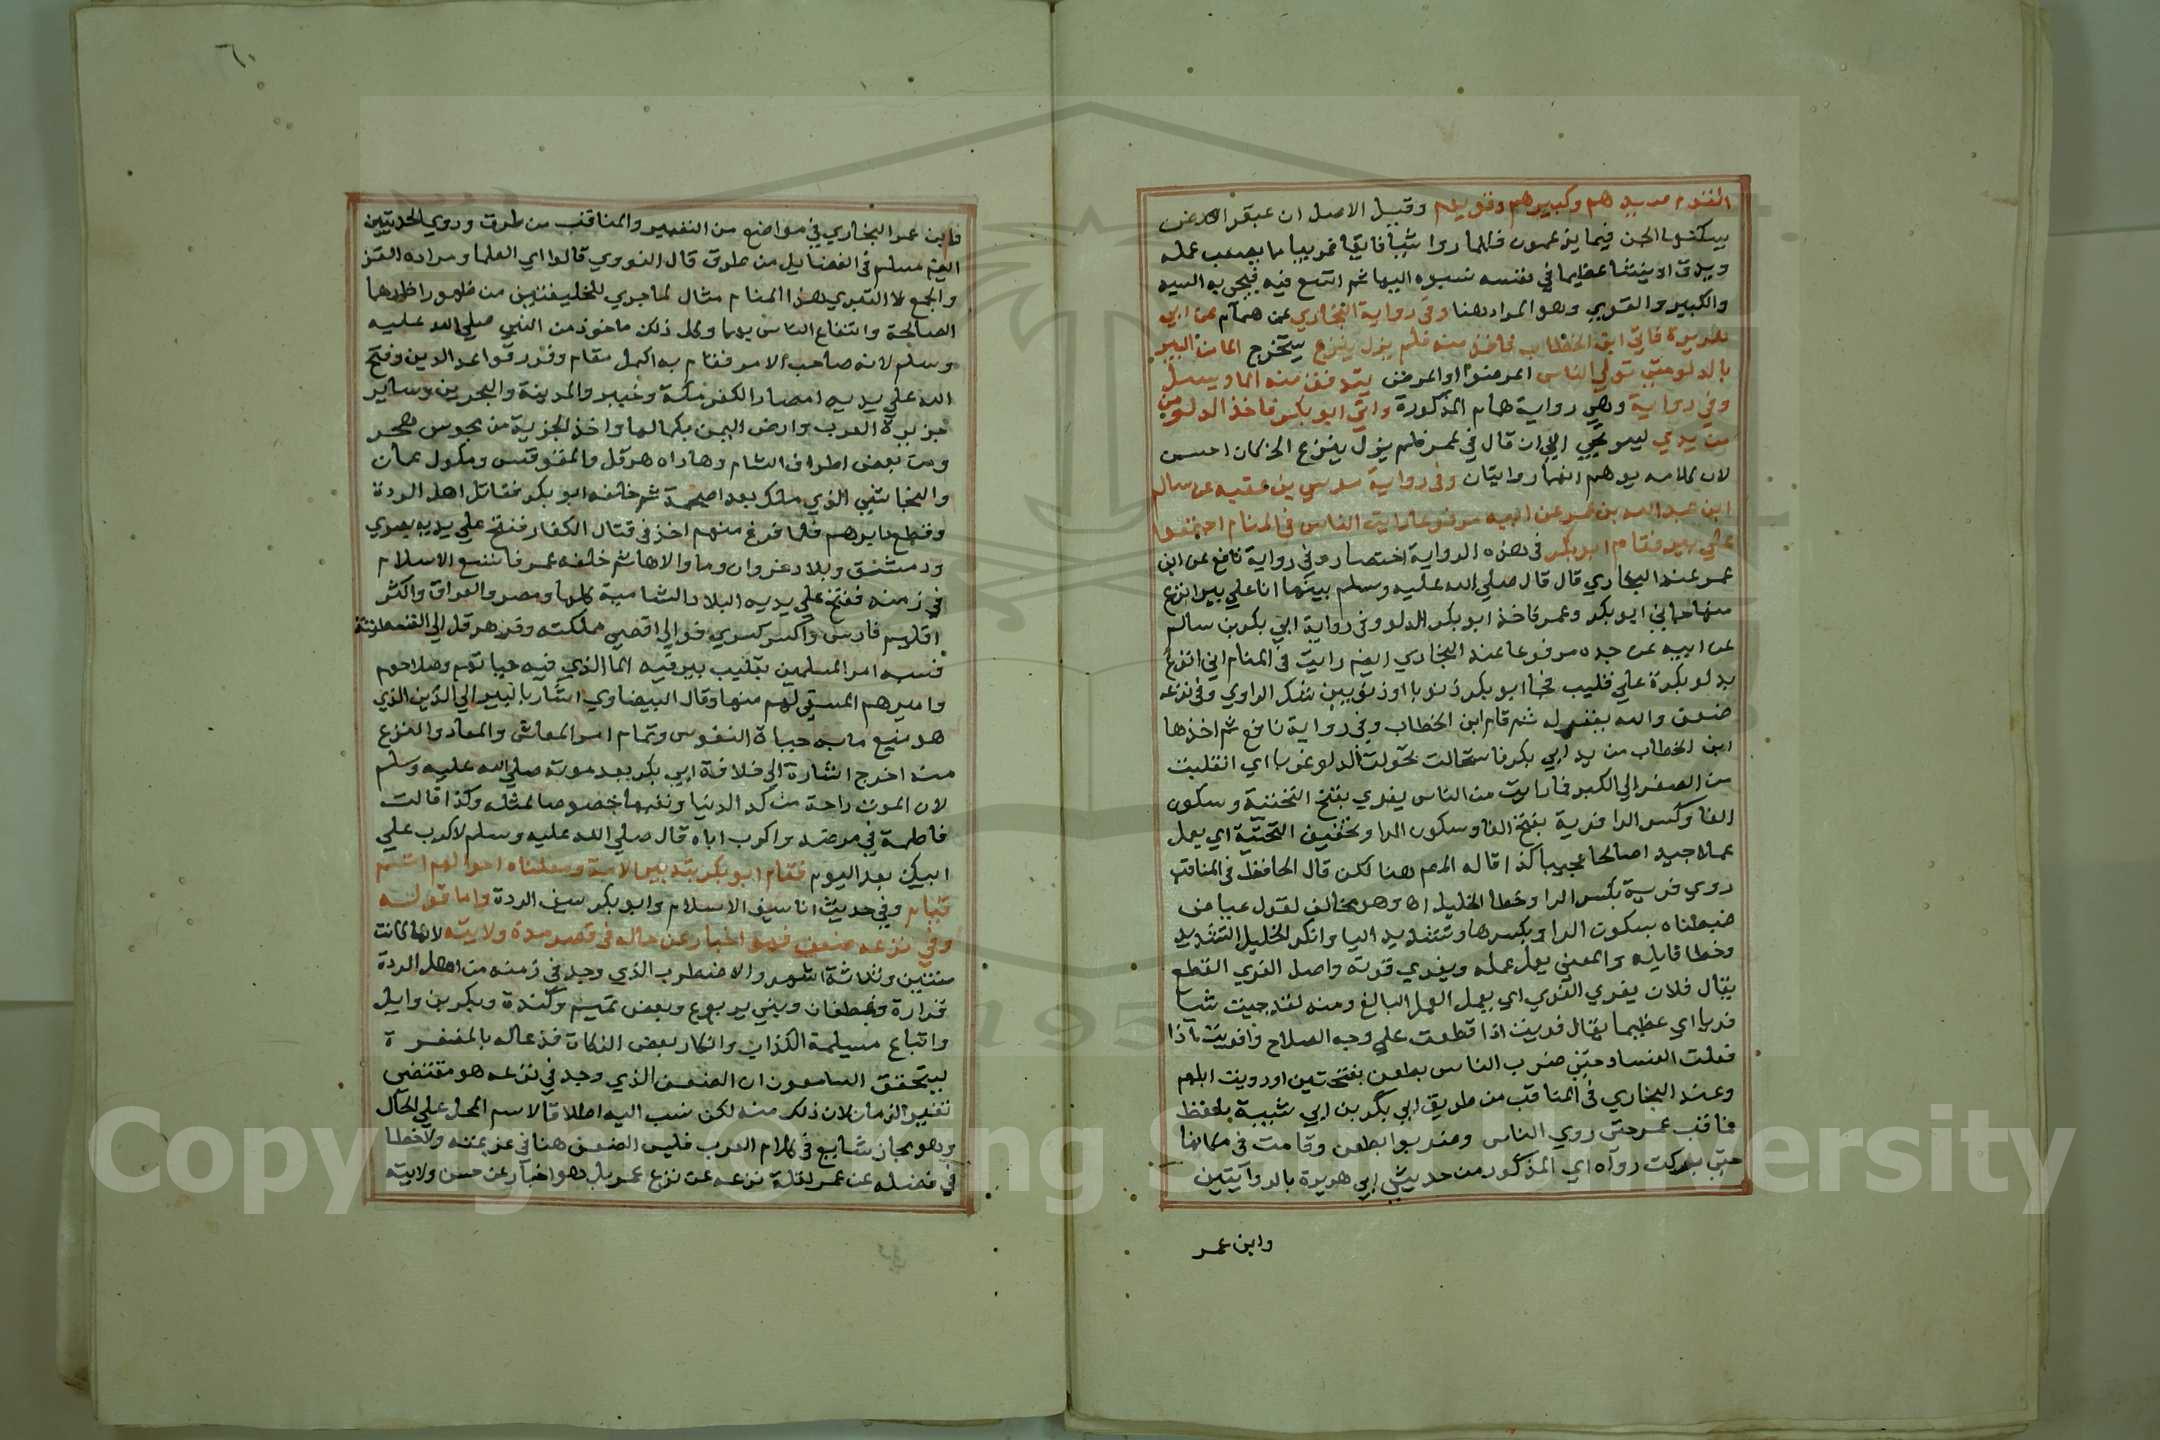 القوم سيدهم وكبيرهم وقويهم وقيل الاصل ان عبقر ارض
يسكنها الجن فيما يزعمون فكلما راوا شيا فايقا غريبا مما يصعب عمله
ويدق او شيئا عظيما في نفسه نسبوه اليها ثم اتسع فيه فسمي به السيد
والكبير والقوي وهو المراد هنا وفي رواية البخاري عن همام عن ابي
هريرة فاتي ابن الخطاب فاخذ منه فلم يزل ينزع يستخرج الما من البير
بالدلو حتي تولي الناس اعرضوا والحوض يتدفق منه الما ويسيل
وفي رواية وهي رواية همام المذكورة واتي ابو بكر فاخذ الدلو من
من يدي ليريحني الي ان قال في عمر فلم يزل ينزع الخ كان احسن
لان كلامه يوهم انهما روايتان وفي رواية موسي بن عقبه عن سالم
ابن عبد الله بن عمر عن ابيه مرفوعا رايت الناس في المنام اجتمعوا
علي بير فقام ابو بكر في هذه الرواية اختصار وفي رواية نافع عن ابن
عمر عند البخاري قال قال صلي الله عليه وسلم بينما انا علي بير انزع
منها جاني ابو بكر وعمر فاخذ ابو بكر الدلو وفي رواية ابي بكر بن سالم
عن ابيه عن جده مرفوعا عند البخاري ايضا رايت في المنام اني انزع
بدلو بكرة علي قليب فجا ابو بكر ذنوبا او ذنوبين شك الراوي وفي نزعه
ضعف والله يغفر له ثم قام ابن الخطاب وفي رواية نافع ثم اخذها
ابن الخطاب من يد ابي بكر فاستحالت تحولت الدلو غربا اي انقلبت
من الصغر الي الكبر فلم ار عبقريا من الناس يفري بفتح التحتية وسكون
الفا وكسر الرا فرية بفتح الفا وسكون الرا وتخفيف التحتية اي يعمل
عملا جيدا صالحا عجيبا كذا قاله المص هنا لكن قال الحافظ في المناقب
روي فرية بكسر الرا وخطا الخليل اه وهو مخالف لقول عياض
ضبطناه بسكون الرا وبكسرها وتشديد اليا وانكر الخليل التشديد
وخطا قايله والمعني يعمل عمله ويفري قوته واصل الفري القطع
يقال فلان يفري الفري اي يعمل العمل البالغ ومنه لقد جيت شيا
فريا اي عظيما يقال فريت اذا قطعت علي وجه الصلاح وافريت اذا
فعلت الفساد حتي ضرب الناس بعطن بفتحتين اورويت ابلهم
وعند البخاري في المناقب من طريق ابي بكر بن ابي شيبة بلفظ
مناقب عمر حتي روي الناس وضربوا بعطن وقامت في مكانها
حتي بركت رواه اي المذكور من حديث ابي هريرة بالروايتين
وابن عمر
٦٠
وابن عمر البخاري في مواضع من التعبير والمناقب من طرق وروي الحديثين
ايضا مسلم في الفضايل من طرق قال النووي قالوا اي العلما ومراده القز
والجمع لا التبري هذا المنام مثال لما جري للخليفتين من ظهور اثارهما
الصالحة وانتفاع الناس بهما وكل ذلك ماخوذ من النبي صلي الله عليه
وسلم لانه صاحب الامر فقام به اكمل مقام وقرر قواعد الدين وفتح
الله علي يديه امصار الكفر مكة وخيبر والمدينة والبحرين وساير
جزيرة العرب وارض اليمن بكمالها واخذ الجزية من مجوس هجر
ومن بعض اطراف الشام وهاداه هرقل والمقوقس وملوك عمان
والنجاشي الذي ملك بعد اصحمة ثم خلفه ابو بكر فقاتل اهل الردة
وقطع دابرهم فلما فرغ منهم اخذ في قتال الكفار ففتح علي يديه بصري
ودمشق وبلاد غزوان وما والاها ثم خلفه عمر فاتسع الاسلام
في زمنه ففتح علي يديه البلاد الشامية كلها ومصر والعراق واكثر
اقليم فارس واكسر كسري فر الي اقصي مملكته وفر هرقل الي القسطنطينية
فشبه امر المسلمين بقليب بير فيه الما الذي فيه حياتهم وصلاحهم
واميرهم المستقي لهم منها وقال البيضاوي اشار بالبير الي الدين الذي
هو منبع ما به حياة النفوس وتمام امر المعاش والمعاد والنزع
منه اخرج اشارة الي خلافة ابي بكر بعد موته صلي الله عليه وسلم
لان الموت راحة من كد الدنيا وتعبها خصوصا لمثله وكذا قالت
فاطمة في مرضه واكرب اباه قال صلي الله عليه وسلم لاكرب علي
ابيك بعد اليوم فقام ابو بكر بتدبير الامة ومعاناه احوالهم اتم
قيام وفي حديث انا سيف الاسلام وابو بكر سيف الردة واما قوله
وفي نزعه ضعف فهو اخبار عن حاله في قصر مدة ولايته لانها كانت
سنتين وثلاثة اشهر والاضطرب الذي وجد في زمنه من اهل الردة
فزارة وغطفان وبني يربوع وبعض تميم وكندة وبكر بن وايل
واتباع مسيلمة الكذاب وانكار بعض الزكاة فدعا له بالمغفرة
ليتحقق السامعون ان الضعف الذي وجد في نزعه هو مقتضي
تغيير الزمان لان ذلك منه لكن نسب اليه اطلاقا لاسم المحل علي الحال
وهو مجاز شايع في كلام العرب فليس الضعف هنا في عزيمته ولا خطا
في فضله عن عمر لقلة نزعه عن نزع عمر بل هو اخبار عن حسن ولايته
Copyright © King Saud University